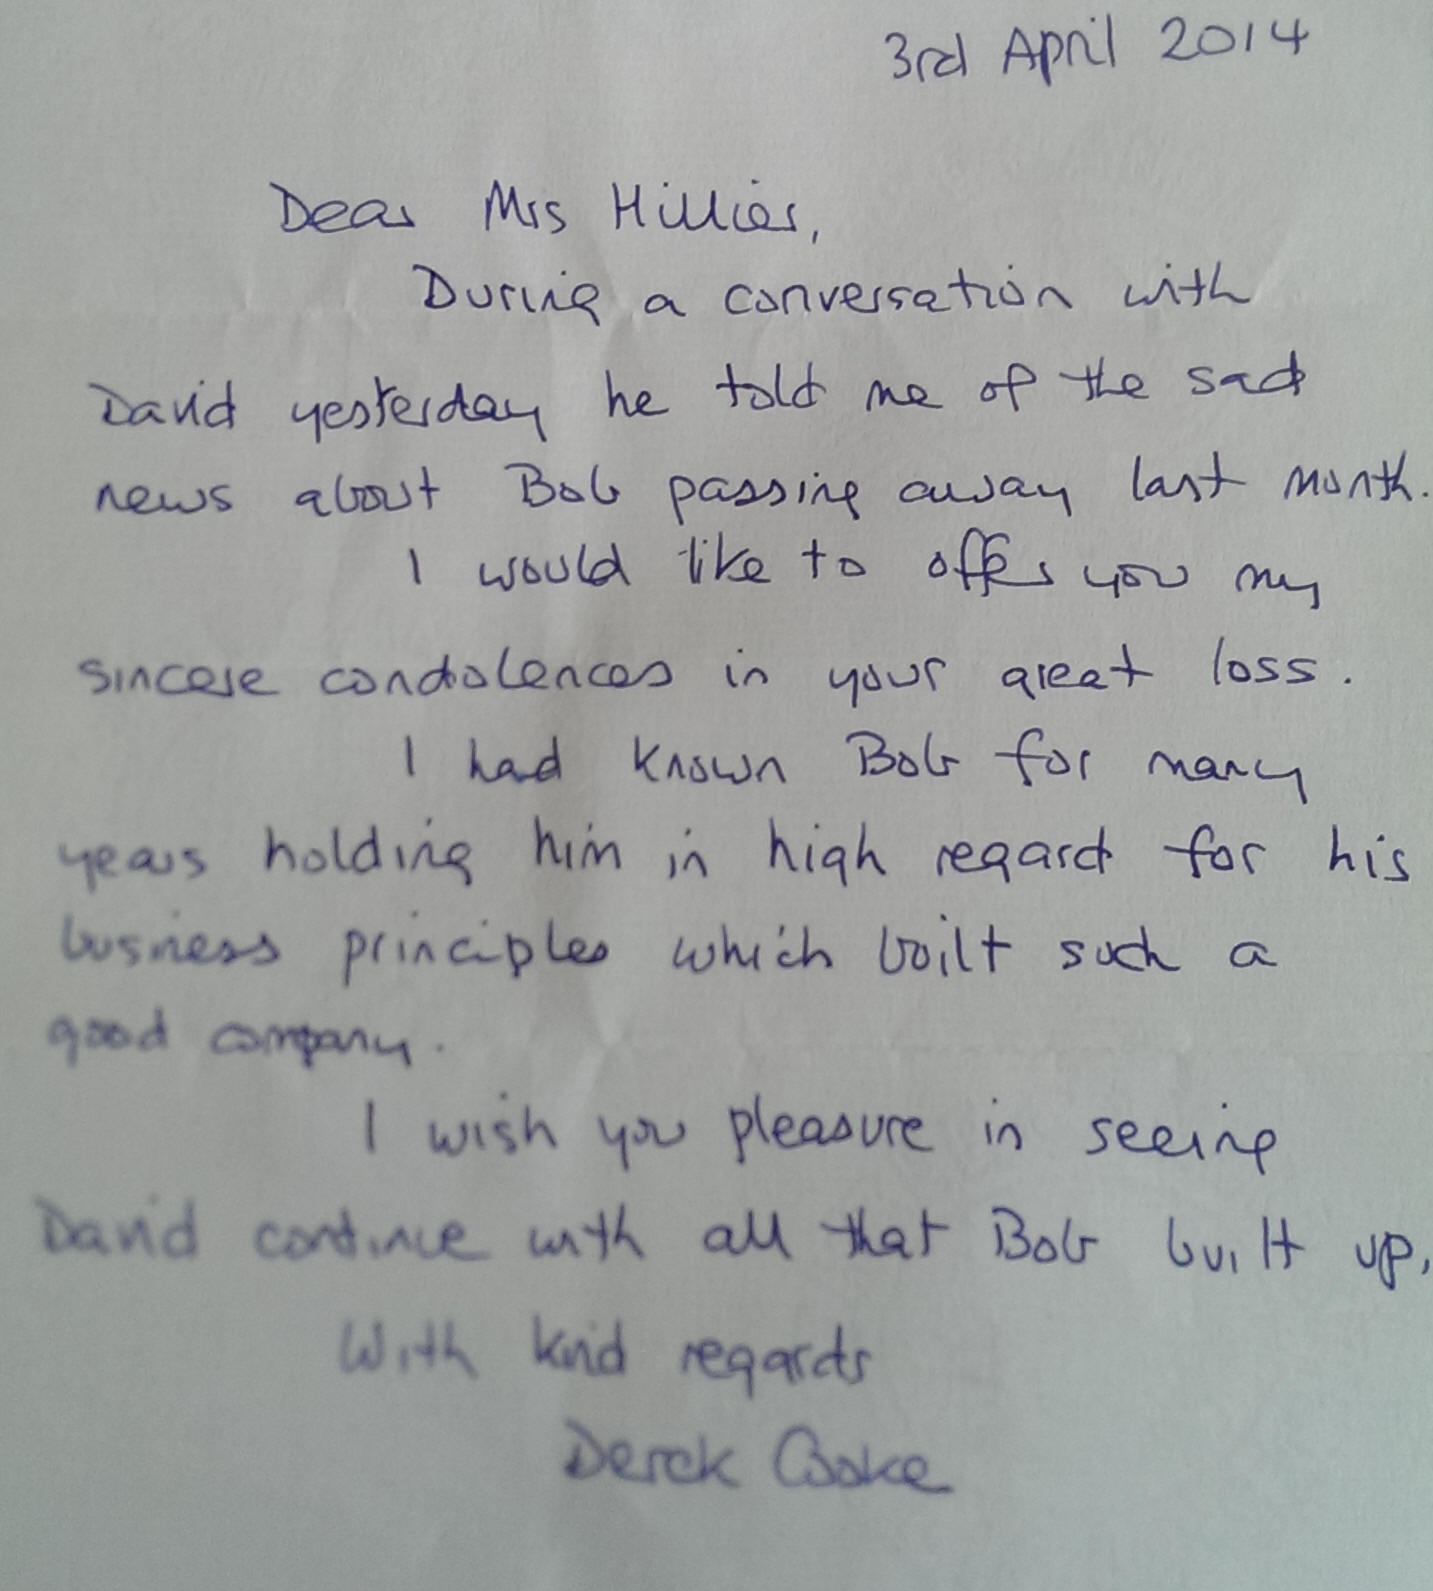 3rd April 2014
Dear Mrs Hillier,
During a conversation with
David yesterday he told me of the sad
news about Bob passing away last month.
I would like to offer you my
sincere condolences in your great loss.
I had known Bob for many
years holding him in high regard for his
business principles which built such a
good company.
I wish you pleasure in seeing
David continue with all that Bob built up.
With kind regards
Derek Cooke